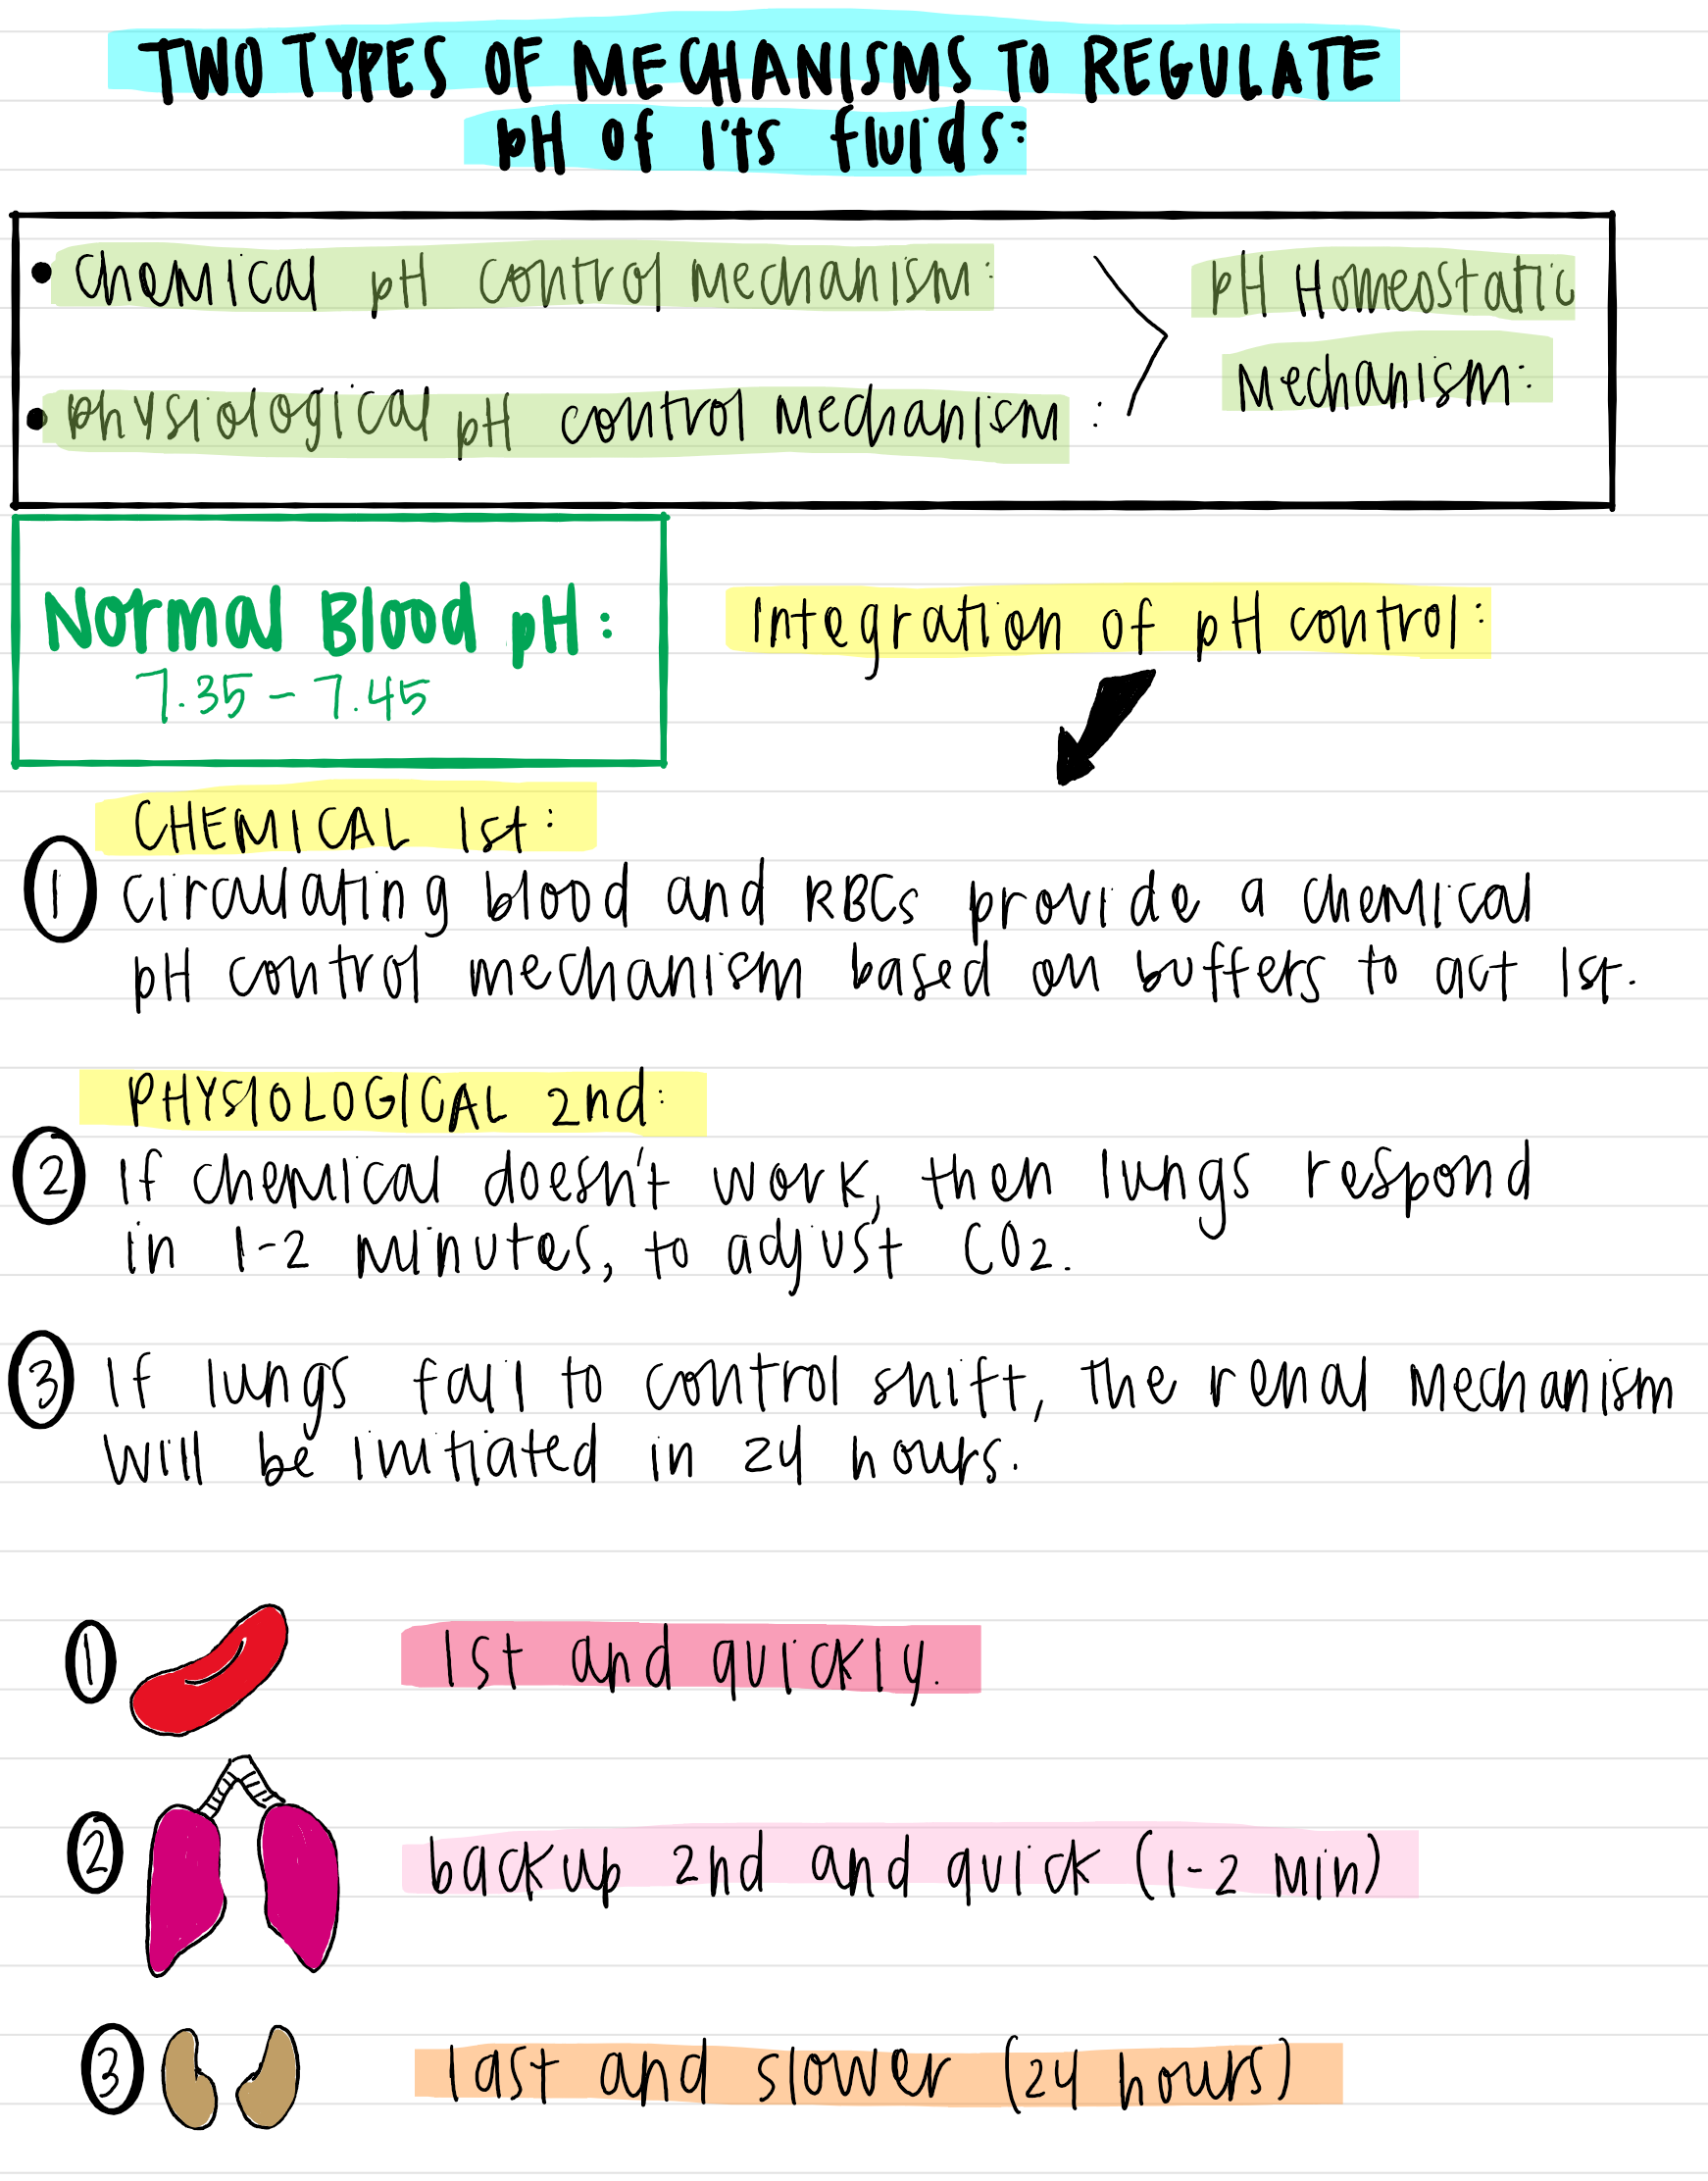 TWO TYPES OF MECHANISMS TO REGULATE
pH of it's fluids:
• Chemical pH control Mechanism:
pH Homeostatic
Mechanism:
• physiological pH control Mechanism:
Normal Blood pH:
7.35 - 7.45
Integration of pH control:
CHEMICAL 1st:
① Circulating blood and RBCs provide a chemical
pH control mechanism based on buffers to act 1st.
PHYSIOLOGICAL 2nd:
② If chemical doesn't work, then lungs respond
in 1-2 minutes, to adjust CO2.
③ If lungs fail to control shift, the renal mechanism
will be initiated in 24 hours.
① 1st and quickly.
② backup 2nd and quick (1-2 min)
③ last and slower (24 hours)